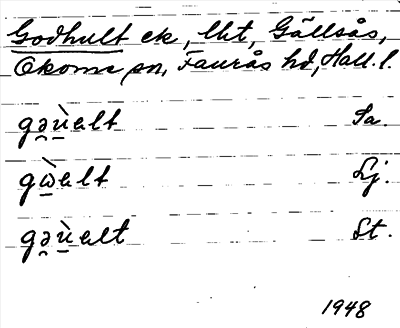 Godhult ek, lht, Gällsås,
Okome sn, Faurås hd, Hall. l.
gə̯ù̱ɐlt Sa.
gẁ̱ɐlt Lj.
gə̯ù̱ɐlt St.
1948